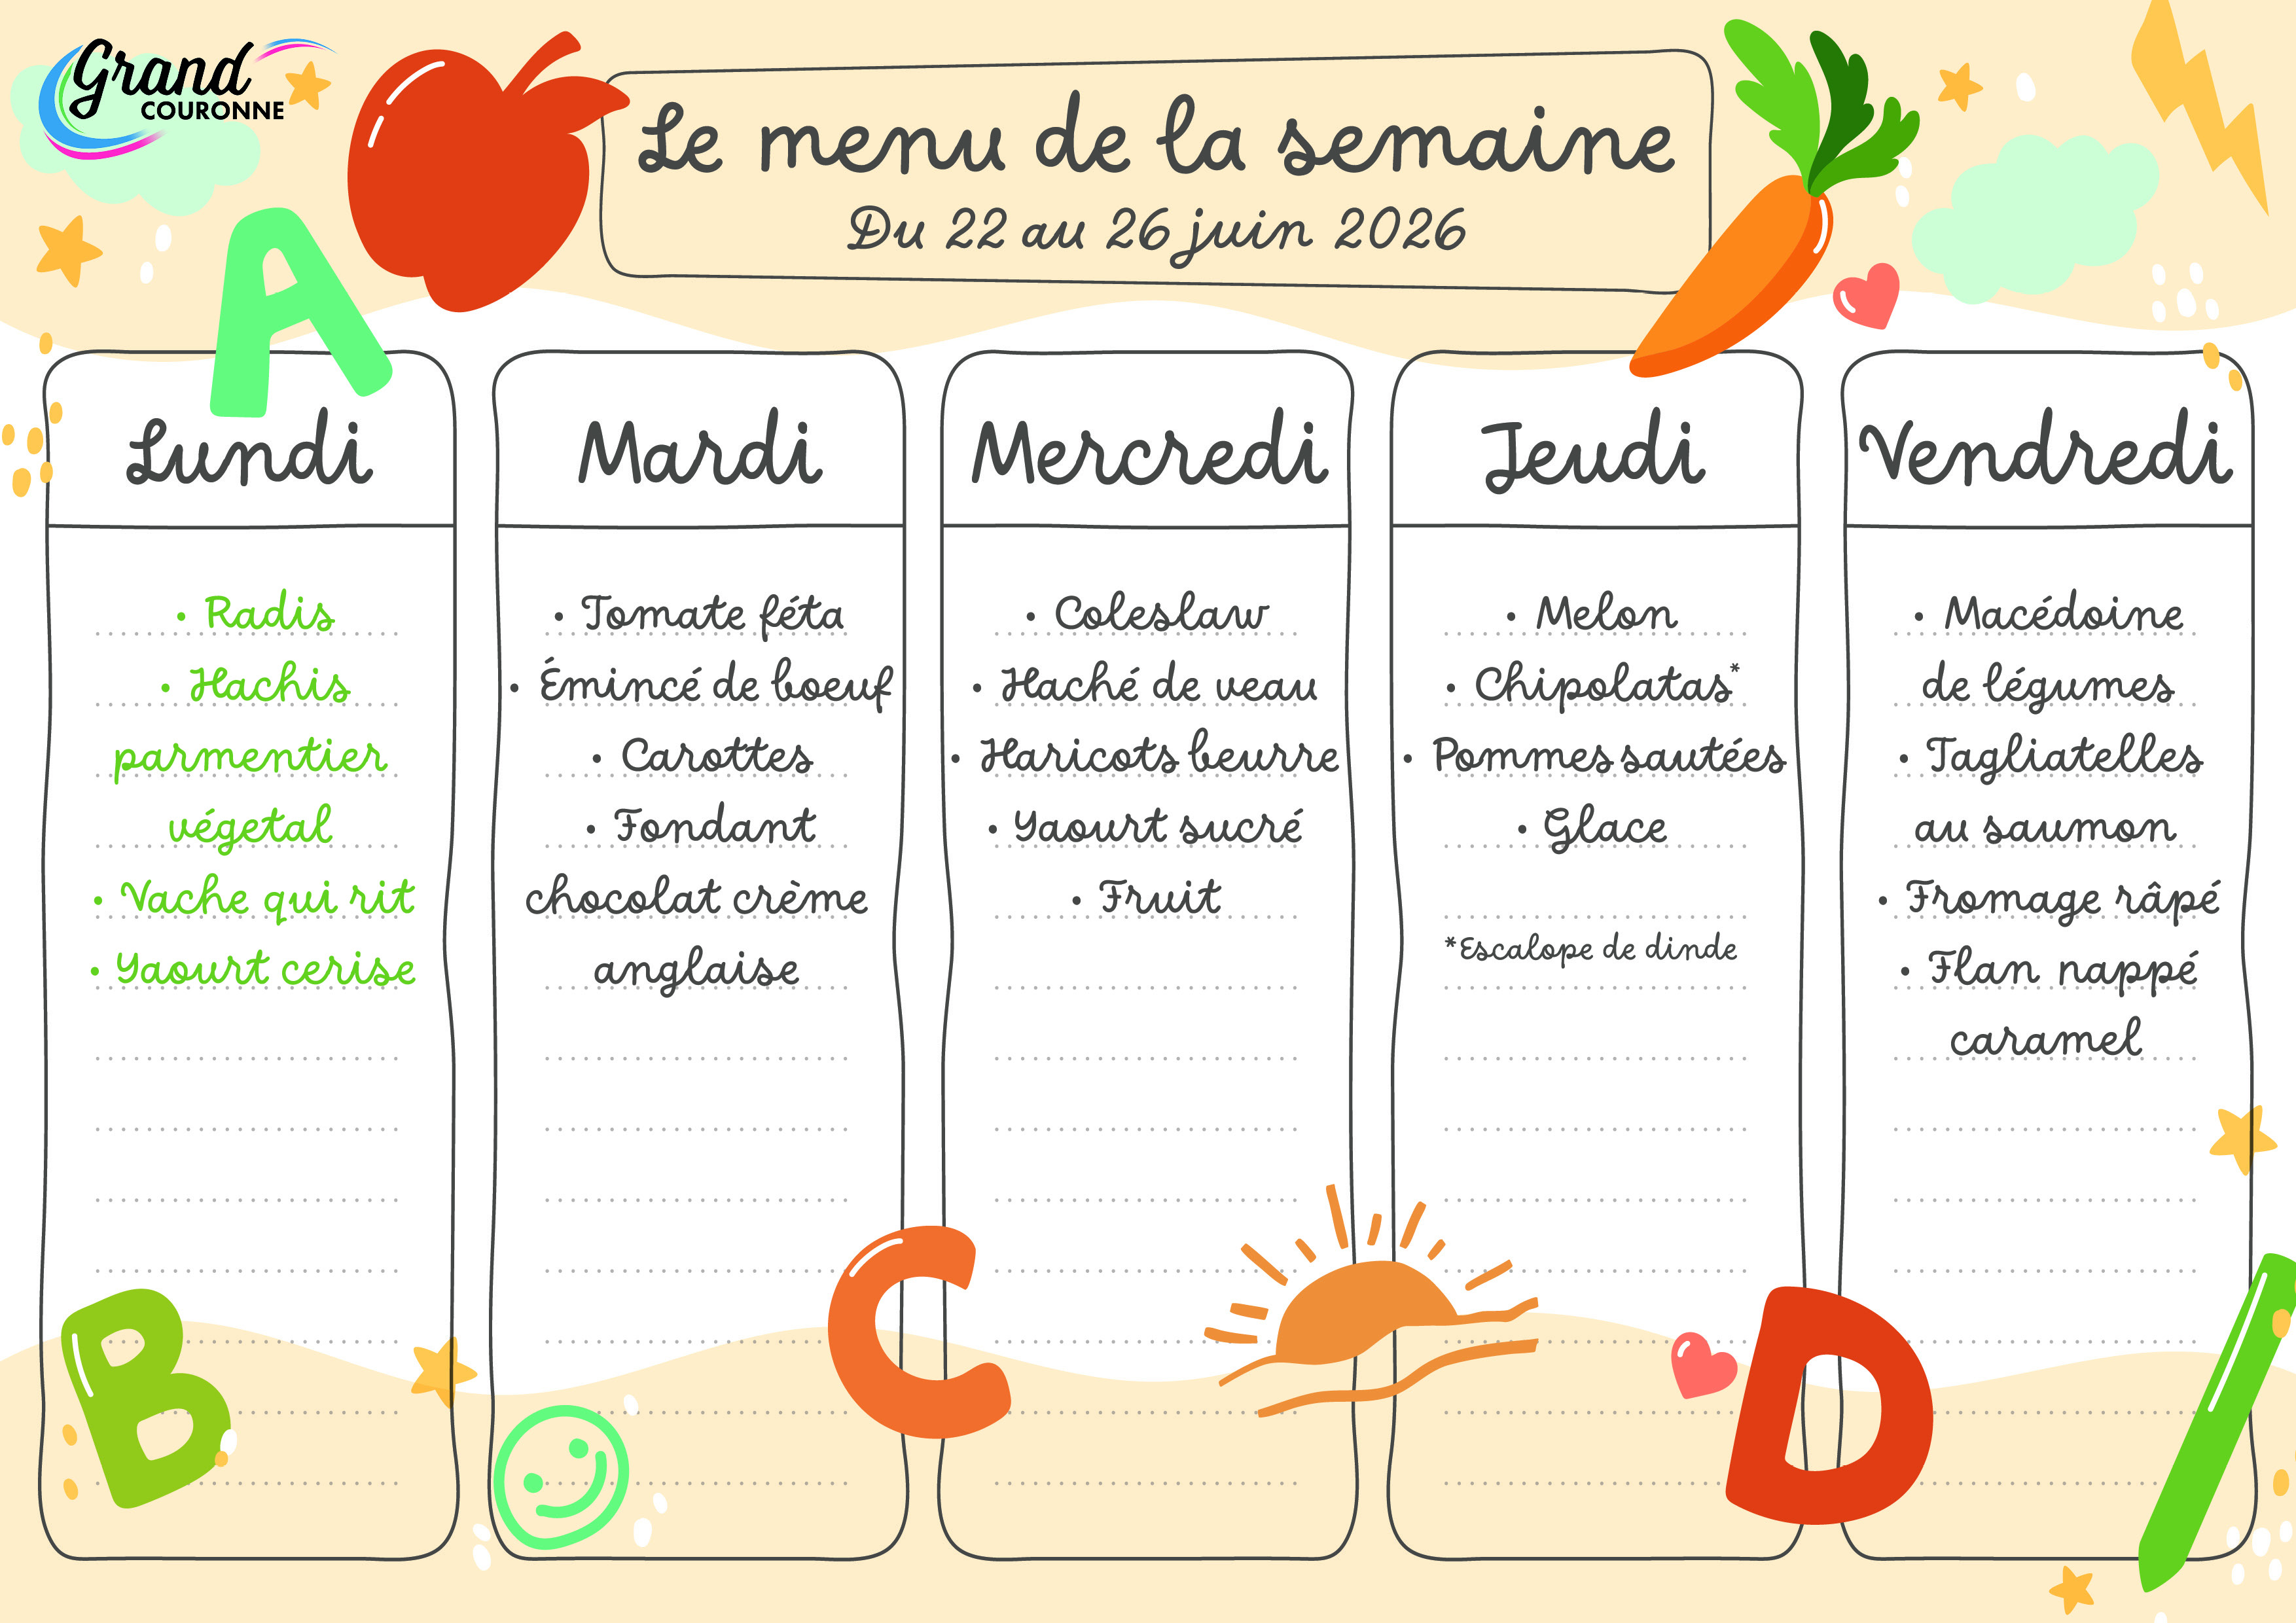 Grand
COURONNE
A
Le menu de la semaine
Du 22 au 26 juin 2026
Lundi
• Radis
• Hachis
parmentier
végetal
• Vache qui rit
• Yaourt cerise
Mardi
• Tomate féta
• Émincé de boeuf
• Carottes
• Fondant
chocolat crème
anglaise
Mercredi
• Coleslaw
• Haché de veau
• Haricots beurre
• Yaourt sucré
• Fruit
Jeudi
• Melon
• Chipolatas*
• Pommes sautées
• Glace
*Escalope de dinde
Vendredi
• Macédoine
de légumes
• Tagliatelles
au saumon
• Fromage râpé
• Flan nappé
caramel
B
C
D